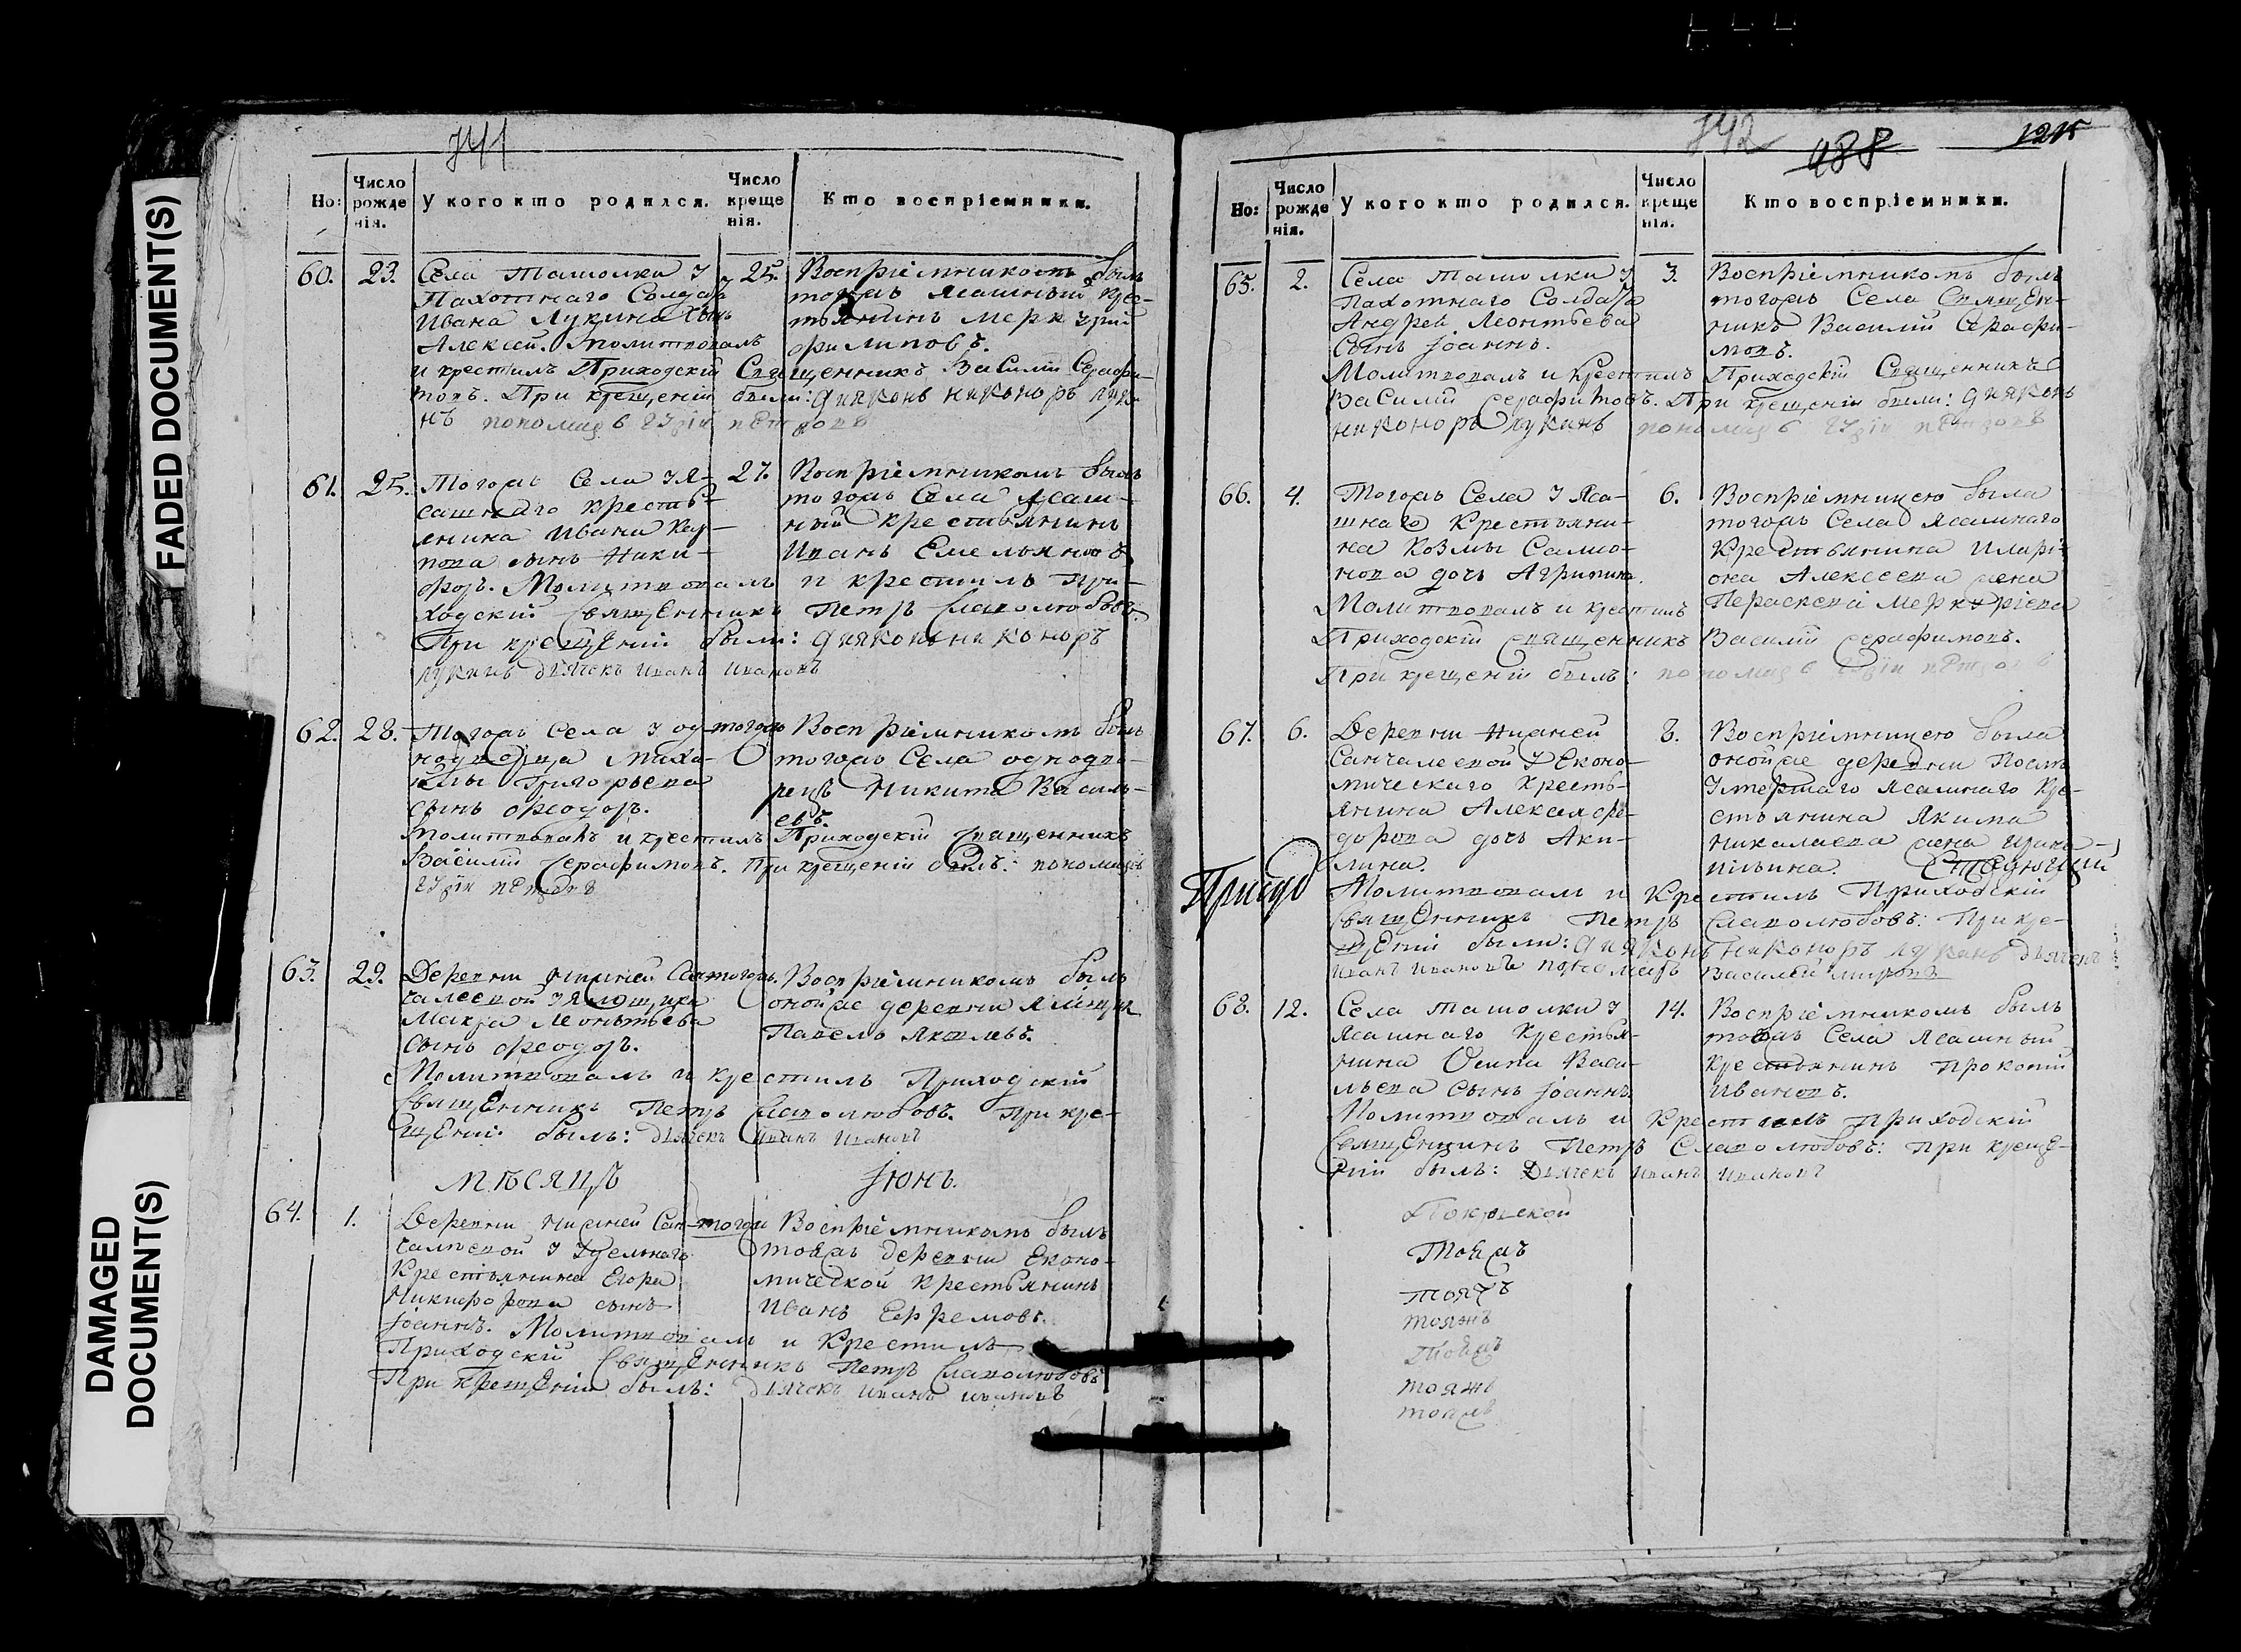 FADED DOCUMENT(S)
DAMAGED DOCUMENT(S)
741
Но:
Число рожде нія.
У кого кто родился.
Число креще нія.
Кто воспріемники.
60. 23. Села Ташолки У
Пахотнаго Солдата
Ивана Лукина сынъ
Алексей. Молитвовалъ
и крестилъ Приходскій Священникъ Василій Серафи-
мовъ. При крещеніи были: дияконъ никоноръ луки-
нъ пономарь гурій петровъ
25. Воспріемникомъ былъ
тогожъ ясашный крес-
тьянинъ меркурій
филиповъ.
61. 25. Тогожъ Села У Я-
сашнаго кресть-
янина Ивана
сынъ Ники-
форъ. Молитвовалъ и крестилъ При-
ходский Священникъ Петръ Славолюбовъ.
При крещеніи были: дияконъ никоноръ
лукинъ дьячекъ иванъ ивановъ
27. Воспріемникомъ былъ
тогожъ Села ясаш-
ный крестьянинъ
Иванъ Емельяновъ
62. 28. Тогожъ Села У од-
нодворца Миха-
йлы Григорьева
сынъ феодоръ.
Молитвовалъ и крестилъ Приходскій Священникъ
Василій Серафимовъ. При крещеніи былъ: пономарь
гурій петровъ
тогожъ Воспріемникомъ былъ
тогожъ Села однодво-
рецъ Никита Василь-
евъ.
63. 29. Деревни нижней Сан-
чалеевой У Ямщика
Макра Леонтьева
сынъ феодоръ.
Молитвовалъ и крестилъ Приходскій
Священникъ Петръ Славолюбовъ. При кре-
щеніи былъ: дьячекъ иванъ ивановъ
тогожъ. Воспріемникомъ былъ
оной же деревни ямщик
Павелъ Яковлевъ.
мѣсяцъ Іюнь.
64. 1. Деревни нижней Сан-
чалеевой У Удельнаго
Крестьянина Егора
Никифорова сынъ
Іоаннъ. Молитвовалъ и Крестилъ
Приходскій Священникъ Петръ Славолюбовъ
При крещеніи былъ: дьячекъ иванъ ивановъ
тогож Воспріемникомъ былъ
тояжъ деревни Еконо-
мической крестьянинъ
Иванъ Ефремовъ.
742
488
1215
Но:
Число рожде нія.
У кого кто родился.
Число креще нія.
Кто воспріемники.
65. 2. Села Ташолки У
Пахотнаго Солдата
Андрея Леонтьева
Сынъ Іоаннъ.
Молитвовалъ и Крестилъ Приходскій Священникъ
Василій Серафимовъ. При крещеніи были: дияконъ
никоноръ лукинъ пономарь гурій петровъ
3. Воспріемникомъ былъ
тогожъ Села Священ-
никъ Василій Серафи-
мовъ.
66. 4. Тогожъ Села У Яса-
шнаго Крестьяни-
на Козмы Самсо-
нова дочь Агрипина.
Молитвовалъ и крестилъ
Приходскій Священникъ Василій Серафимовъ.
При крещеніи былъ: пономарь гурій петровъ
6. Воспріемницею была
тогожъ Села ясашнаго
Крестьянина Иларі-
она Алексеева жена
Параскева Меркуріева
67. 6. Деревни Нижней
Санчалеевой У Еконо-
мическаго Кресть-
янина Алексея фе-
дорова дочь Аки-
лина.
Молитвовалъ и Крестилъ Приходскій
Священникъ Петръ Славолюбовъ: При кре-
щеніи были: дияконъ никоноръ лукинъ дьячекъ
иванъ ивановъ пономарь василей
8. Воспріемницею была
оной же деревни Послѣ
Умершаго ясашнаго Кре-
стьянина Якима
Николаева жена Ирина
68. 12. Села Ташолки У
Ясашнаго Крестья-
нина Осипа Васи-
льева Сынъ Іоаннъ.
Молитвовалъ и Крестилъ приходскій
Священникъ Петръ Славолюбовъ: При креще-
ніи былъ: Дьячекъ иванъ ивановъ
14. Воспріемникомъ былъ
тогожъ Села Ясашный
крестьянинъ Прокопій
Ивановъ.
тояжъ
тояжъ
тояжъ
тояжъ
тояжъ
тояжъ